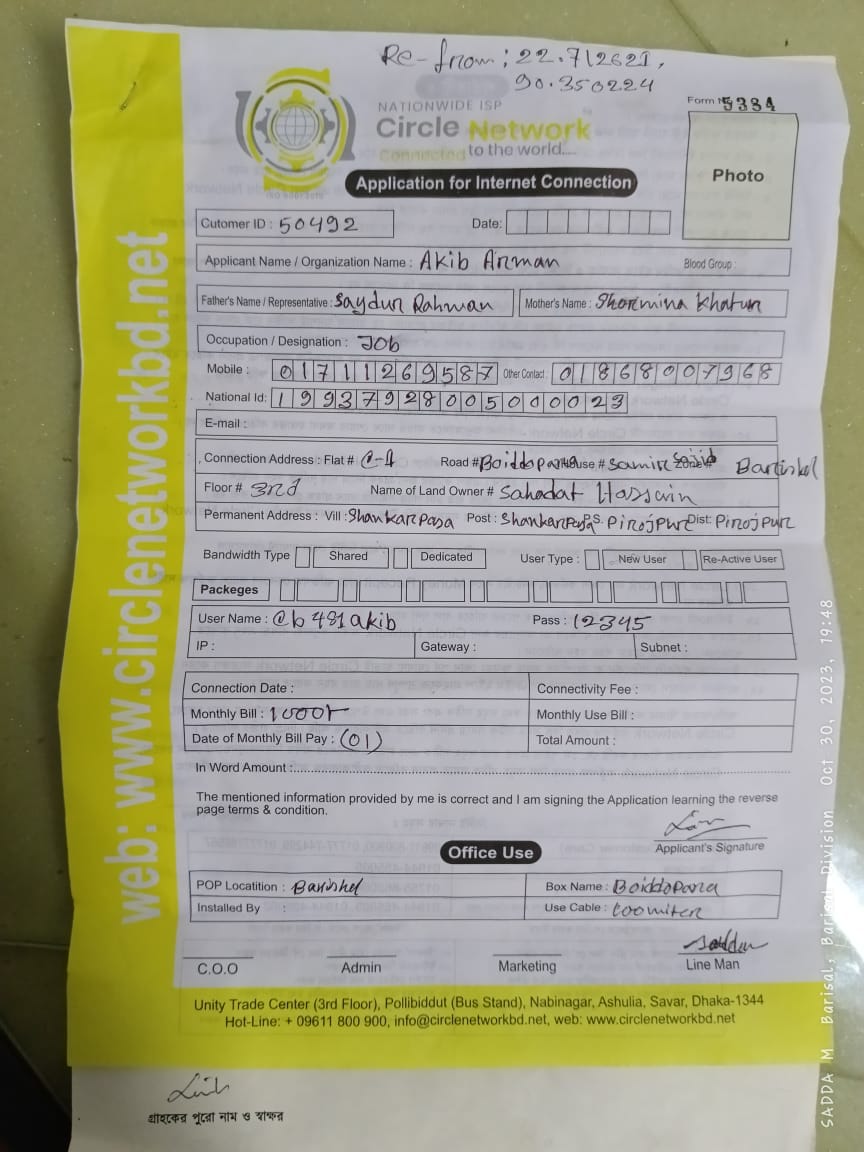 Re-from: 22.712621,
90.350224
NATIONWIDE ISP
Circle Network
Connected to the world....
Form № 5384
Photo
Application for Internet Connection
Cutomer ID : 50492 Date:
Applicant Name / Organization Name : Akib Arman Blood Group :
Father's Name / Representative : Saydur Rahman Mother's Name : Sharmina Khatun
Occupation / Designation : Job
Mobile : 01711269587 Other Contact : 01868007968
National Id: 19937928005000023
E-mail :
Connection Address : Flat # Road # Boiddopara House # Samir Sajid Barishal
Floor # 3rd Name of Land Owner # Sahadat Hossain
Permanent Address : Vill : Shankarpasa Post : Shankarpasa P.S. Pirojpur Dist: Pirojpur
Bandwidth Type Shared Dedicated User Type : New User Re-Active User
Packeges
User Name : @b481akib Pass : 12345
IP : Gateway : Subnet :
Connection Date : Connectivity Fee :
Monthly Bill : 1000৳ Monthly Use Bill :
Date of Monthly Bill Pay : (01) Total Amount :
In Word Amount :
The mentioned information provided by me is correct and I am signing the Application learning the reverse
page terms & condition.
Applicant's Signature
Office Use
POP Locatition : Barishal Box Name : Boiddopara
Installed By : Use Cable :
Saddam
C.O.O Admin Marketing Line Man
Unity Trade Center (3rd Floor), Pollibiddut (Bus Stand), Nabinagar, Ashulia, Savar, Dhaka-1344
Hot-Line: + 09611 800 900, info@circlenetworkbd.net, web: www.circlenetworkbd.net
গ্রাহকের পুরো নাম ও স্বাক্ষর
web: www.circlenetworkbd.net
SADDA M Barisal, Barisal Division Oct 30, 2023, 19:48